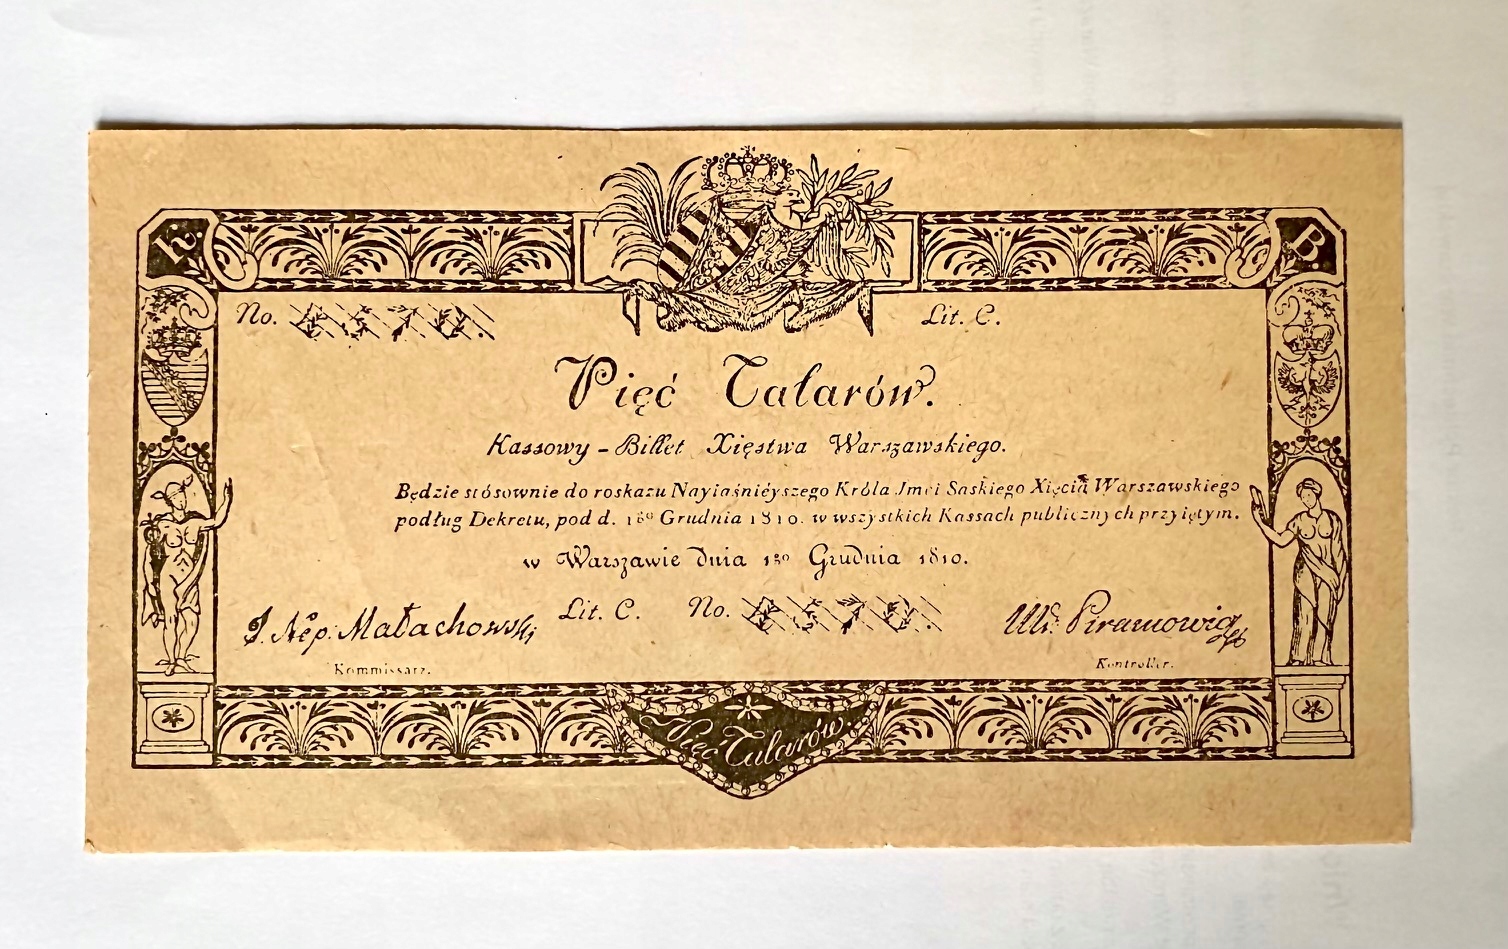 K. B.
No. Lit. C.
Pięć Talarów.
Kassowy-Billet Xięstwa Warszawskiego.
Będzie stósownie do roskazu Nayiaśniéyszego Króla Jmci Saskiego Xięcia Warszawskiego
podług Dekretu, pod d. 1go Grudnia 1810. w wszystkich Kassach publicznych przyiętym.
w Warszawie Dnia 1go Grudnia 1810.
Lit. C. No.
J. Nep. Małachowski
Piramowicz
Kommissarz. Kontroller.
Pięć Talarów.